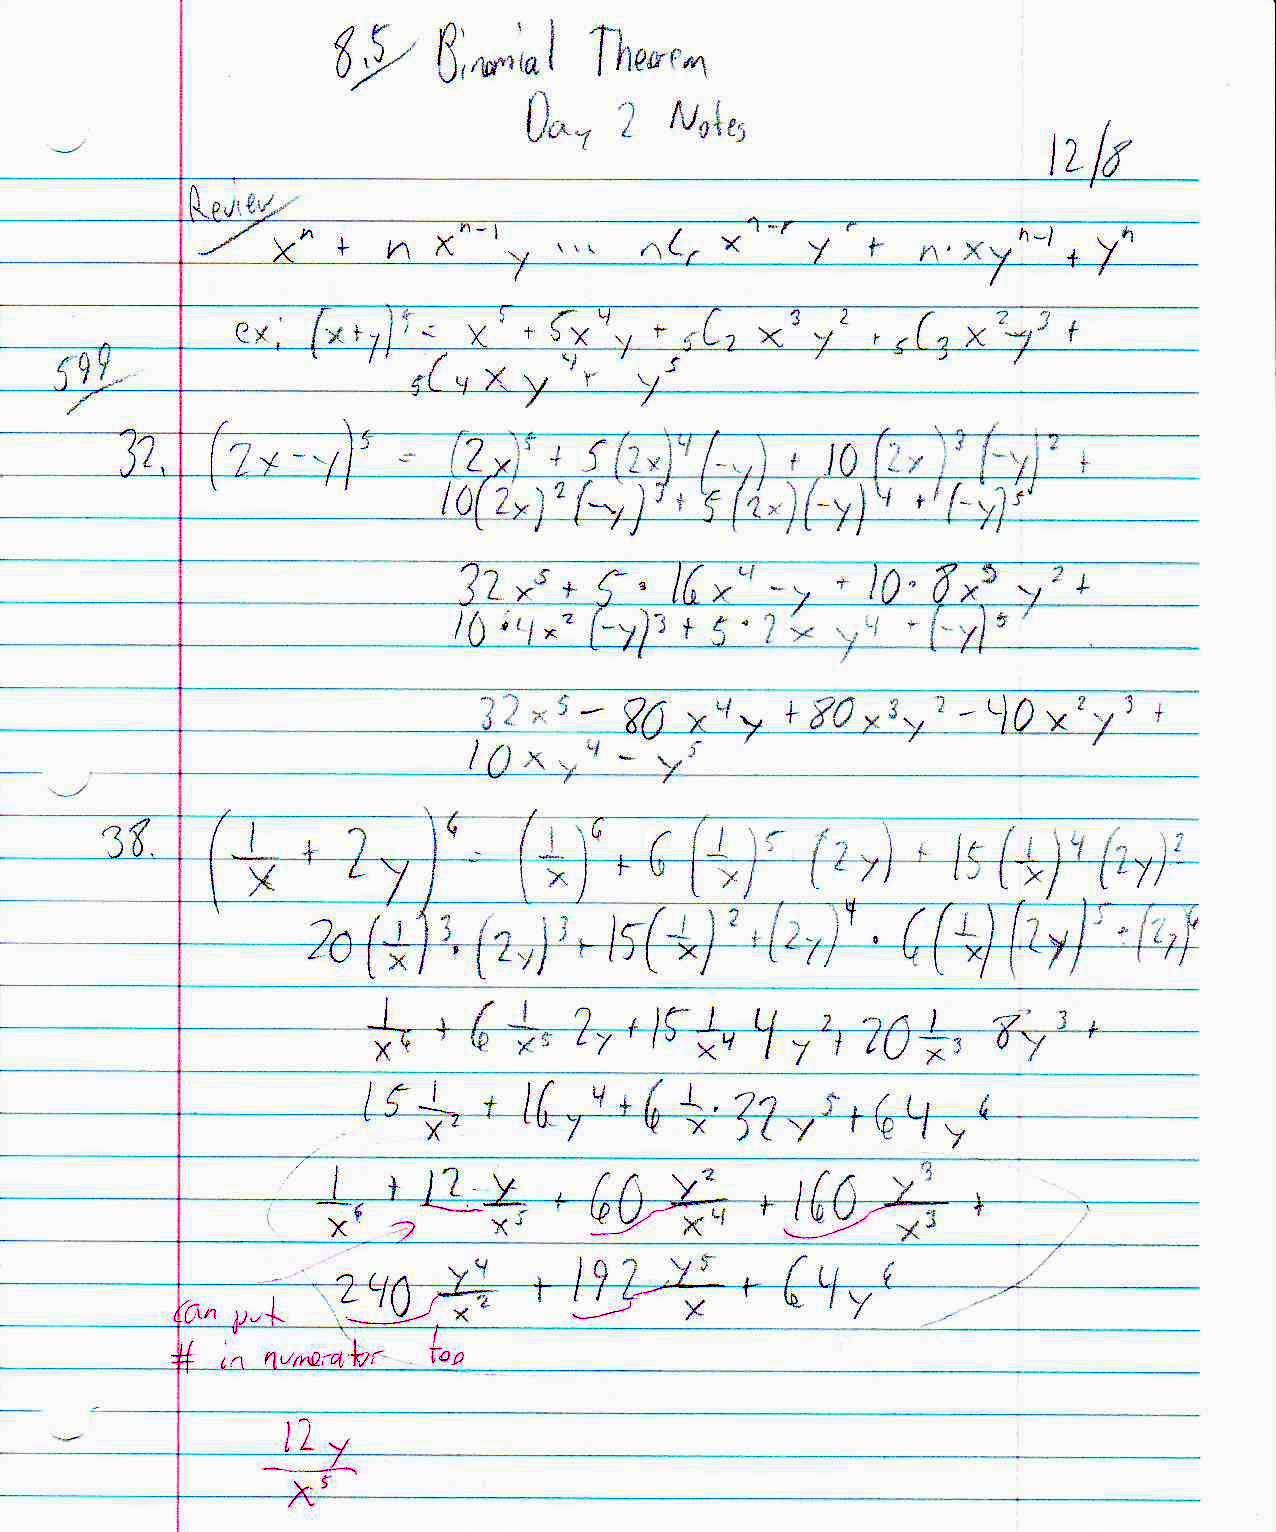 8.5 Binomial Theorem
Day 2 Notes
12/8
Review
xⁿ + n xⁿ⁻¹y ... nCr xⁿ⁻ʳ yʳ + n·xyⁿ⁻¹ + yⁿ
ex: (x+y)⁵ = x⁵ + 5x⁴y + ₅C₂ x³y² + ₅C₃ x²y³ +
599
₅C₄ x y⁴ + y⁵
32. (2x-y)⁵ = (2x)⁵ + 5(2x)⁴(-y) + 10(2x)³(-y)² +
10(2x)²(-y)³ + 5(2x)(-y)⁴ + (-y)⁵
32x⁵ + 5·16x⁴-y + 10·8x³ y² +
10·4x²(-y)³ + 5·2x y⁴ + (-y)⁵
32x⁵ - 80x⁴y + 80x³y² - 40x²y³ +
10xy⁴ - y⁵
38. (1/x + 2y)⁶ = (1/x)⁶ + 6(1/x)⁵ (2y) + 15(1/x)⁴(2y)²
20(1/x)³·(2y)³ + 15(1/x)² + (2y)⁴ · 6(1/x)(2y)⁵ + (2y)⁶
1/x⁶ + 6 1/x⁵ 2y + 15 1/x⁴ 4y² + 20 1/x³ 8y³ +
15 1/x² + 16y⁴ + 6 1/x · 32y⁵ + 64y⁶
1/x⁶ + 12 · y/x⁵ + 60 y²/x⁴ + 160 y³/x³ +
240 y⁴/x² + 192 y⁵/x + 64y⁶
can put
# in numerator too
12y/x⁵